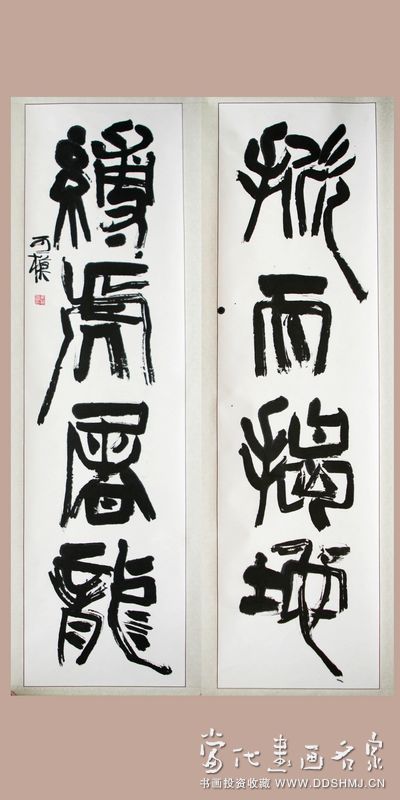 掀天揭地
縛虎屠龍
可模
當代書畫名家
书画投资收藏 WWW.DDSHMJ.CN